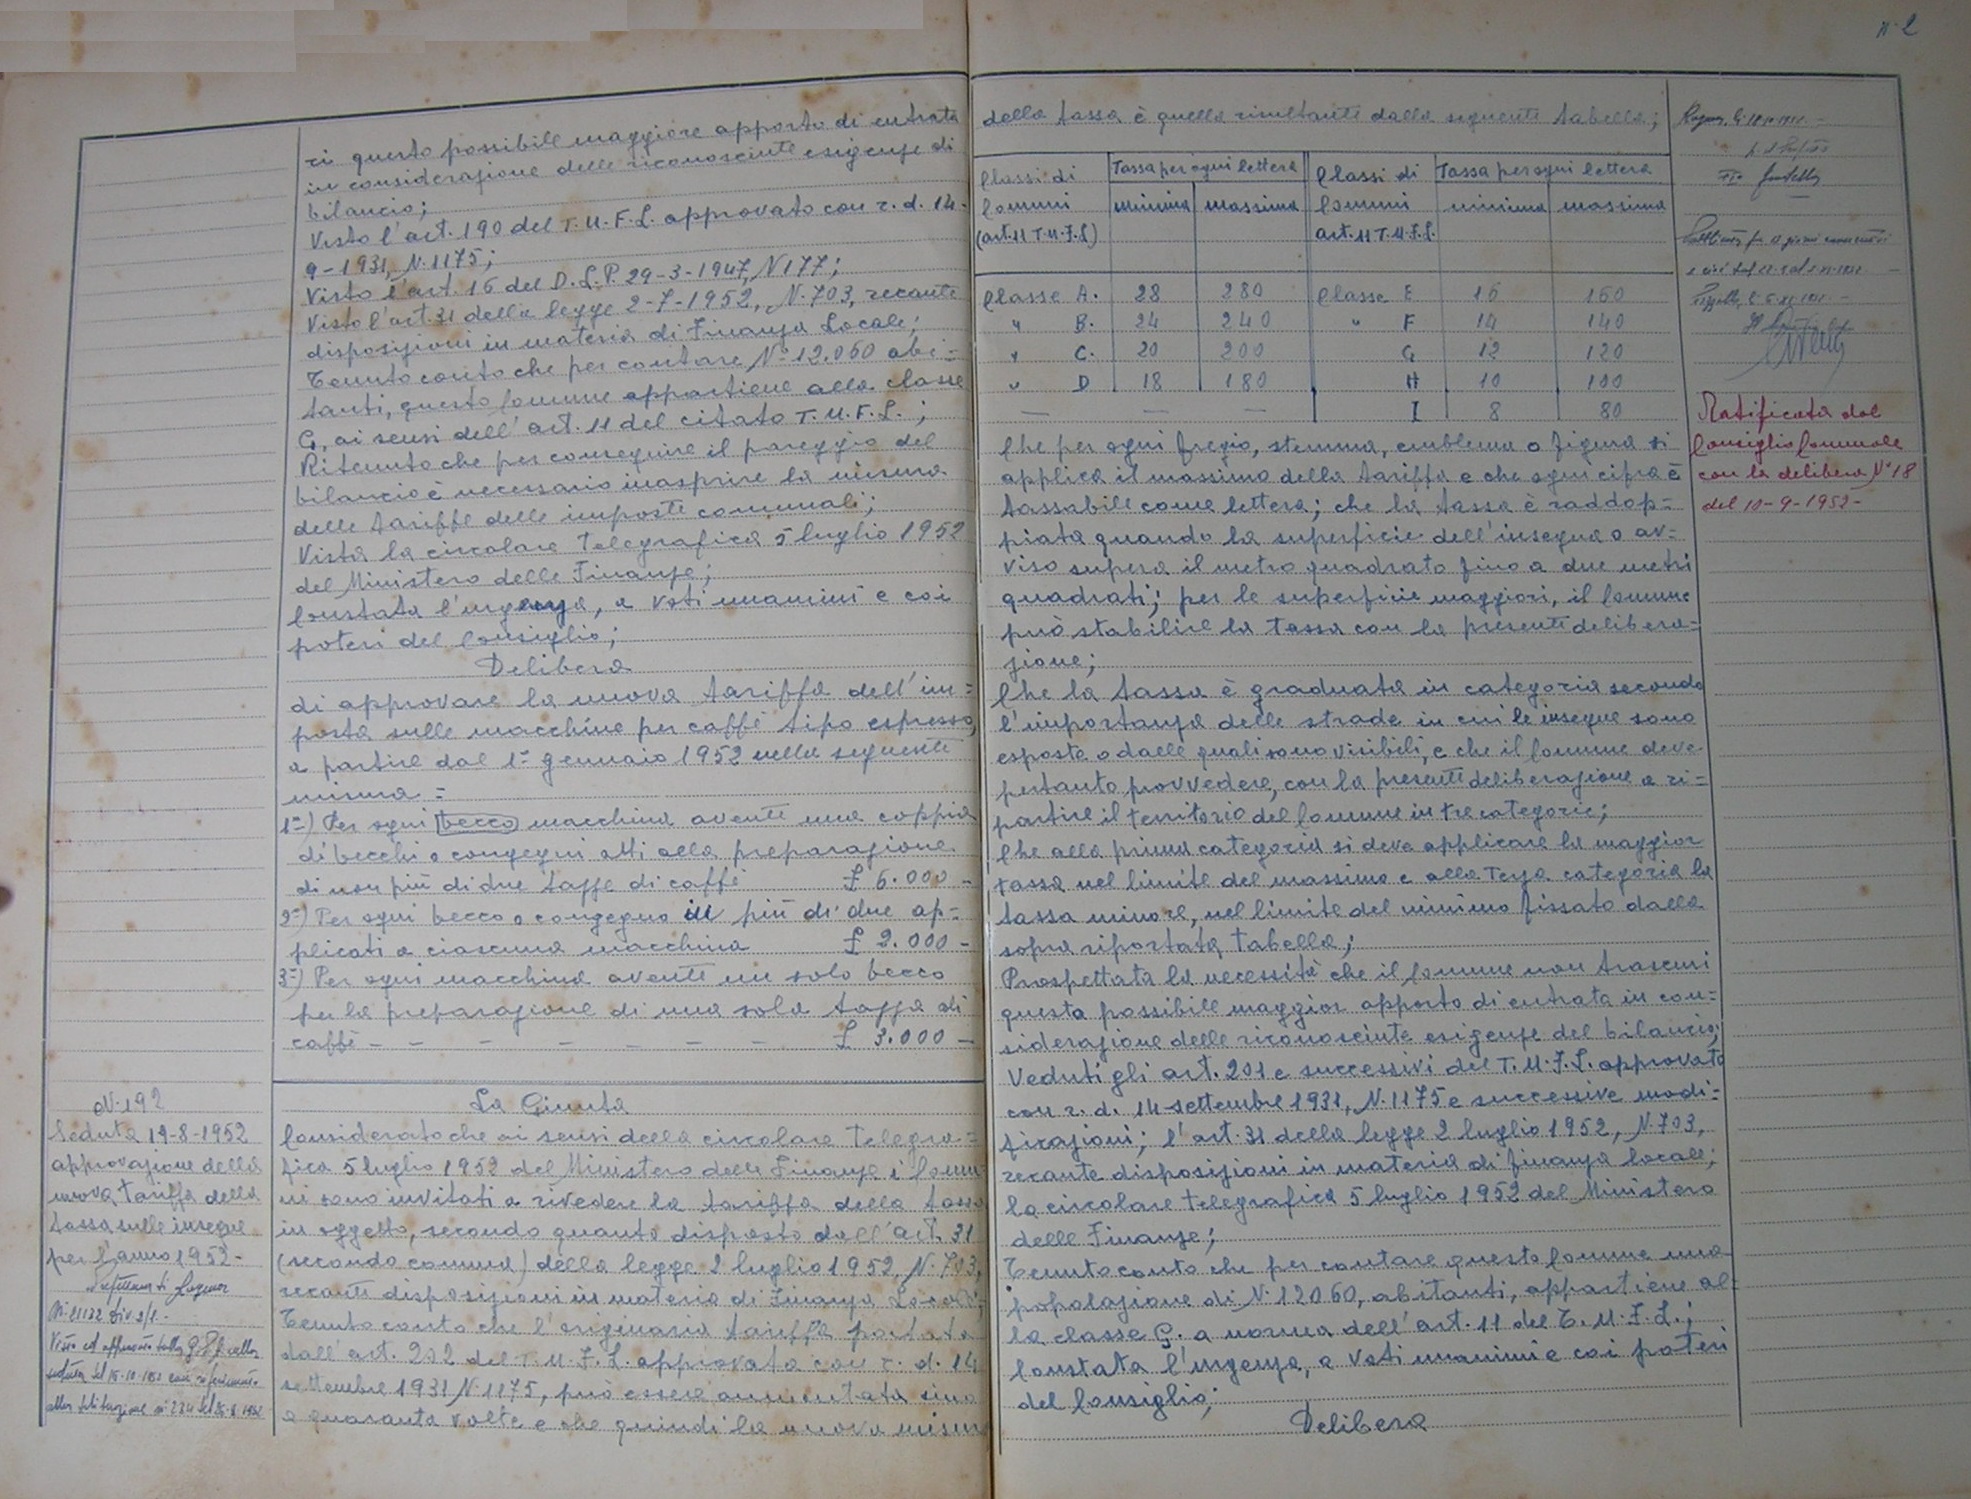 ri questo possibile maggiore apporto di entrata
in considerazione delle riconosciute esigenze di
bilancio;
Visto l'art. 190 del T.U.F.L. approvato con r.d. 14-
9-1931, N. 1175;
Visto l'art. 16 del D.L.P. 29-3-1947, N 177;
Visto l'art. 31 della legge 2-7-1952, N. 703, recante
disposizioni in materia di Finanza Locale;
Tenuto conto che per contare N° 12.060 abi-
tanti, questo Comune appartiene alla classe
G, ai sensi dell'art. 11 del citato T.U.F.L.;
Ritenuto che per conseguire il pareggio del
bilancio è necessario inasprire la misura
delle tariffe delle imposte comunali;
Vista la circolare telegrafica 5 luglio 1952
del Ministero delle Finanze;
Constata l'urgenza, a voti unanimi e coi
poteri del Consiglio;
Delibera
di approvare la nuova tariffa dell'im=
posta sulle macchine per caffè tipo espresso,
a partire dal 1° gennaio 1952 nella seguente
misura =
1°) Per ogni becco macchina avente una coppia
di becchi o congegni atti alla preparazione
di non più di due tazze di caffè £ 6.000 -
2°) Per ogni becco o congegno in più di due ap=
plicati a ciascuna macchina £ 2.000 -
3°) Per ogni macchina avente un solo becco
per la preparazione di una sola tazza di
caffè - - - - - - - £ 3.000 -
N. 192
Seduta 19-8-1952
approvazione della
nuova tariffa della
tassa sulle insegne
per l'anno 1952-
N° 21122 Div. 2/1.-
La Giunta
Considerato che ai sensi della circolare telegra=
fica 5 luglio 1952 del Ministero delle Finanze i Comu-
ni sono invitati a rivedere la tariffa della tassa
in oggetto, secondo quanto disposto dall'art. 31
(secondo comma) della legge 2 luglio 1952, N. 703,
recante disposizioni in materia di Finanza Locale;
Tenuto conto che l'originaria tariffa portata
dall'art. 202 del T.U.F.L. approvato con r.d. 14
settembre 1931 N. 1175, può essere aumentata sino
a quaranta volte e che quindi la nuova misura
N. 2
della tassa è quella risultante dalla seguente tabella;
Classi di Comuni (art. 11 T.U.F.L) Tassa per ogni lettera Classi di Comuni art. 11 T.U.F.L. Tassa per ogni lettera
minima massima minima massima
Classe A. 28 280 Classe E 16 160
" B. 24 240 " F 14 140
" C. 20 200 G 12 120
" D 18 180 H 10 100
— — — I 8 80
Che per ogni fregio, stemma, emblema o figura si
applica il massimo della tariffa e che ogni cifra è
tassabile come lettera; che la tassa è raddop=
piata quando la superficie dell'insegna o av=
viso supera il metro quadrato fino a due metri
quadrati; per le superficie maggiori, il Comune
può stabilire la tassa con la presente delibera=
zione;
Che la tassa è graduata in categoria secondo
l'importanza delle strade in cui le insegne sono
esposte o dalle quali sono visibili, e che il Comune deve
pertanto provvedere, con la presente deliberazione a ri=
partire il territorio del Comune in tre categorie;
Che alla prima categoria si deve applicare la maggior
tassa nel limite del massimo e alla terza categoria la
tassa minore, nel limite del minimo fissato dalla
sopra riportata tabella;
Prospettata la necessità che il Comune non trascuri
questo possibile maggior apporto di entrata in con=
siderazione delle riconosciute esigenze del bilancio;
Veduti gli art. 201 e successivi del T.U.F.L. approvato
con r.d. 14 settembre 1931, N. 1175 e successive modi=
ficazioni; l'art. 31 della legge 2 luglio 1952, N. 703,
recante disposizioni in materia di finanza locale;
la circolare telegrafica 5 luglio 1952 del Ministero
delle Finanze;
Tenuto conto che per contare questo Comune una
popolazione di N. 12060, abitanti, appartiene al-
la classe G. a norma dell'art. 11 del T.U.F.L.;
Constata l'urgenza, a voti unanimi e coi poteri
del Consiglio;
Delibera
Ratificata dal
Consiglio Comunale
con la delibera N° 18
del 10-9-1952-